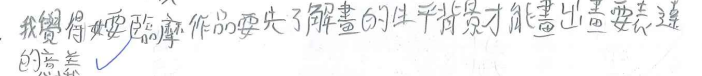 我覺得如要臨摩作品要先了解畫的生平背景才能畫出畫要表達
的意義